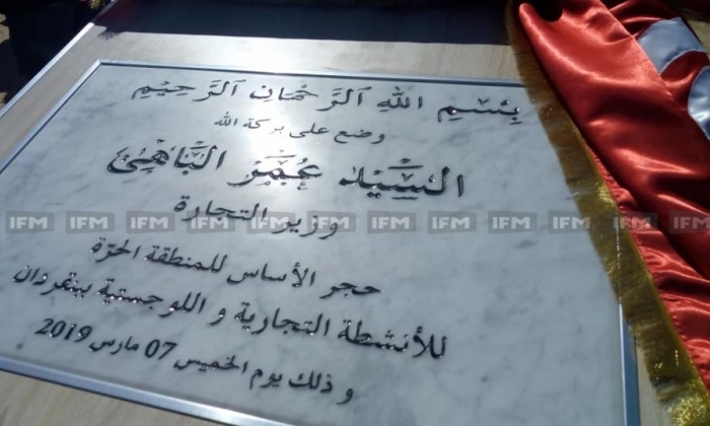 بِسْمِ اللهِ الرَّحْمَانِ الرَّحِيمِ
وضع على بركة الله
السَّيِّد عُمَر البَاهِي
وزير التجارة
IFM IFM IFM IFM IFM IFM IFM IFM IFM IFM IFM IFM
حجر الأساس للمنطقة الحرّة
للأنشطة التجارية و اللوجستية ببنقردان
و ذلك يوم الخميس 07 مارس 2019